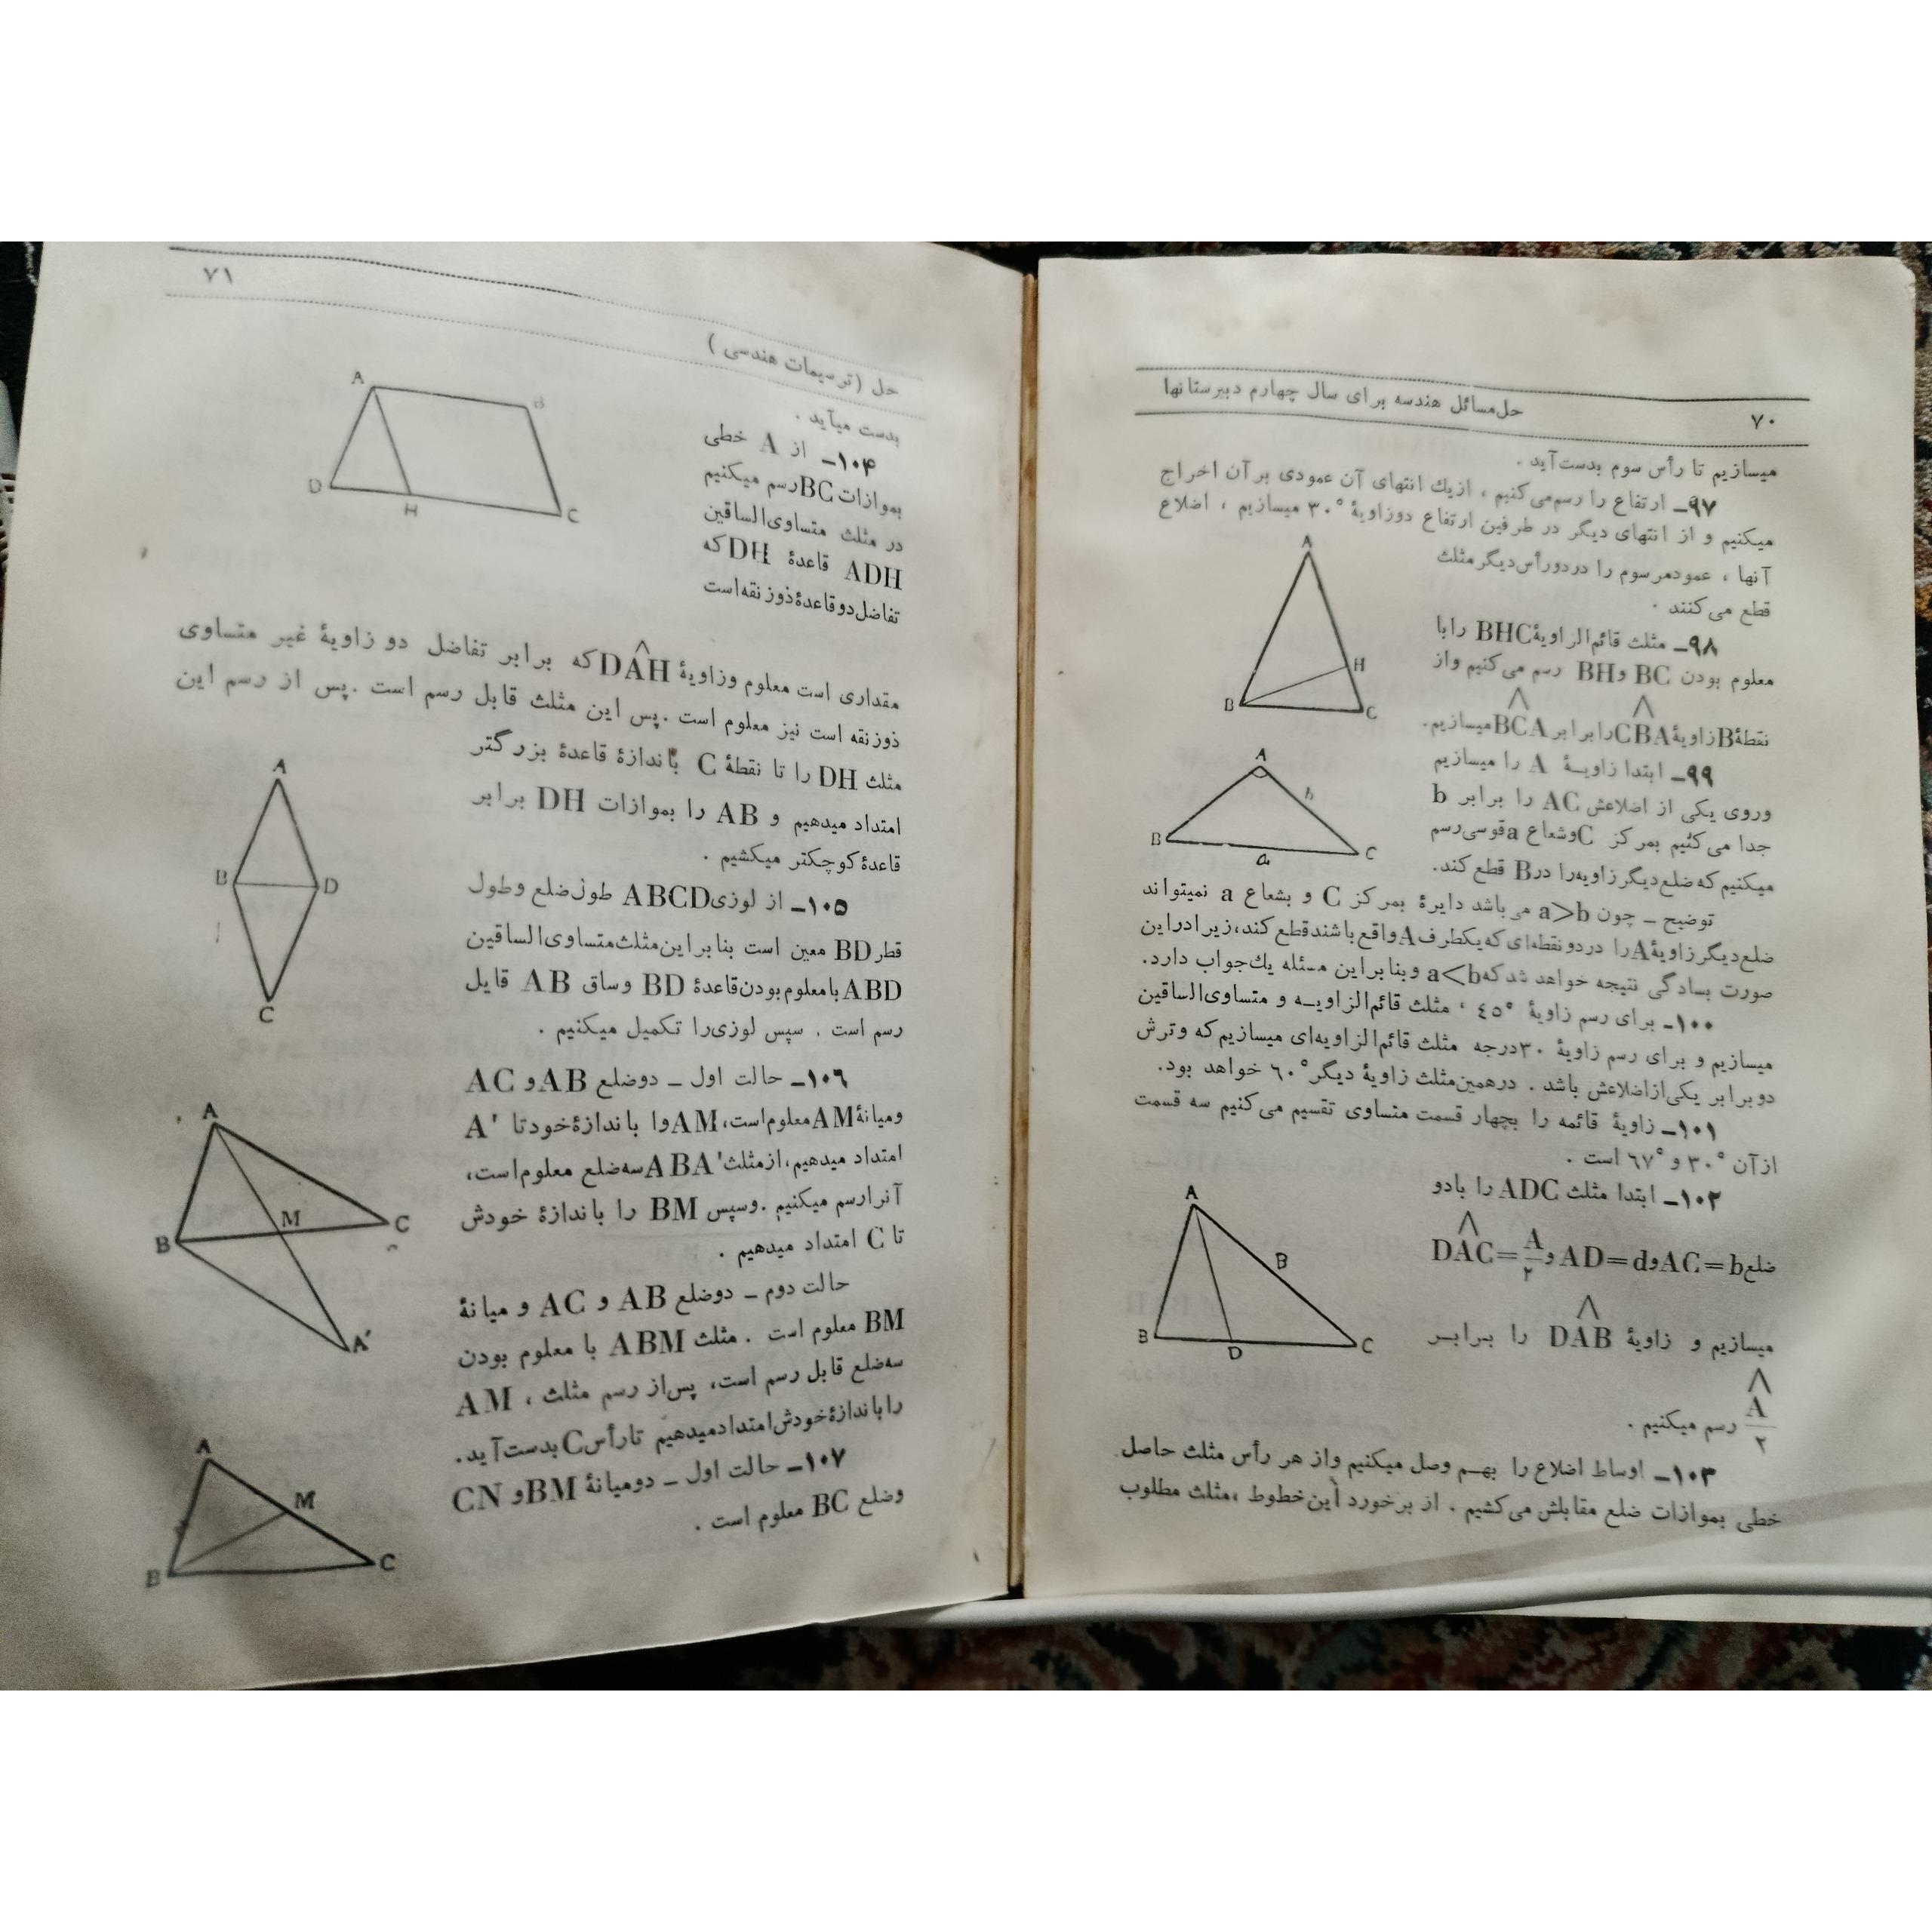 حل مسائل هندسه برای سال چهارم دبیرستانها
۷۰
میسازیم تا رأس سوم بدست آید .
۹۷ـ ارتفاع را رسم می کنیم ، از یك انتهای آن عمودی بر آن اخراج
میکنیم و از انتهای دیگر در طرفین ارتفاع دو زاویهٔ ۳۰° میسازیم ، اضلاع
آنها ، عمود مرسوم را در دو رأس دیگر مثلث
قطع می کنند .
۹۸ـ مثلث قائم الزاویهٔ BHC را با
معلوم بودن BC و BH رسم می کنیم و از
نقطهٔ B زاویهٔ CBA را برابر BCA میسازیم.
۹۹ـ ابتدا زاویـهٔ A را میسازیم
و روی یکی از اضلاعش AC را برابر b
جدا می کنیم بمرکز C و شعاع a قوسی رسم
میکنیم که ضلع دیگر زاویه را در B قطع کند.
توضیح ـ چون a>b می باشد دایرهٔ بمرکز C و بشعاع a نمیتواند
ضلع دیگر زاویهٔ A را در دو نقطه ای که یکطرف A واقع باشند قطع کند، زیرا در این
صورت بسادگی نتیجه خواهد شد که a<b و بنابراین مسئله یك جواب دارد.
۱۰۰ـ برای رسم زاویهٔ ٤٥° ، مثلث قائم الزاویـه و متساوی الساقین
میسازیم و برای رسم زاویهٔ ۳۰ درجه مثلث قائم الزاویه ای میسازیم که وترش
دو برابر یکی از اضلاعش باشد . در همین مثلث زاویهٔ دیگر ٦٠° خواهد بود.
۱۰۱ـ زاویهٔ قائمه را بچهار قسمت متساوی تقسیم می کنیم سه قسمت
از آن ۳۰° و ٦٧° است .
۱۰۲ـ ابتدا مثلث ADC را با دو
ضلع AC=b و AD=d و DAC=A/۲
میسازیم و زاویهٔ DAB را بـرابـر
A/۲ رسم میکنیم .
۱۰۳ـ اوساط اضلاع را بهـم وصل میکنیم و از هر رأس مثلث حاصل
خطی بموازات ضلع مقابلش می کشیم . از برخورد این خطوط ، مثلث مطلوب
A
H
B
C
A
b
B
a
C
A
B
B
D
C
۷۱
حل (ترسیمات هندسی )
بدست میآید .
۱۰۴ـ از A خطی
بموازات BC رسم میکنیم
در مثلث متساوی الساقین
ADH قاعدهٔ DH که
تفاضل دو قاعدهٔ ذوزنقه است
مقداری است معلوم و زاویهٔ DAH که برابر تفاضل دو زاویهٔ غیر متساوی
ذوزنقه است نیز معلوم است . پس این مثلث قابل رسم است . پس از رسم این
مثلث DH را تا نقطهٔ C باندازهٔ قاعدهٔ بزرگتر
امتداد میدهیم و AB را بموازات DH برابر
قاعدهٔ کوچکتر میکشیم .
۱۰۵ـ از لوزی ABCD طول ضلع و طول
قطر BD معین است بنابراین مثلث متساوی الساقین
ABD با معلوم بودن قاعدهٔ BD و ساق AB قابل
رسم است . سپس لوزی را تکمیل میکنیم .
۱۰٦ـ حالت اول ـ دو ضلع AB و AC
و میانهٔ AM معلوم است، AM وا باندازهٔ خود تا A'
امتداد میدهیم، از مثلث ABA' سه ضلع معلوم است،
آنرا رسم میکنیم . و سپس BM را باندازهٔ خودش
تا C امتداد میدهیم .
حالت دوم ـ دو ضلع AB و AC و میانهٔ
BM معلوم است . مثلث ABM با معلوم بودن
سه ضلع قابل رسم است، پس از رسم مثلث ، AM
را باندازهٔ خودش امتداد میدهیم تا رأس C بدست آید.
۱۰۷ـ حالت اول ـ دو میانهٔ BM و CN
و ضلع BC معلوم است .
A
B
D
H
C
A
B
D
C
A
M
B
C
A'
A
M
B
C